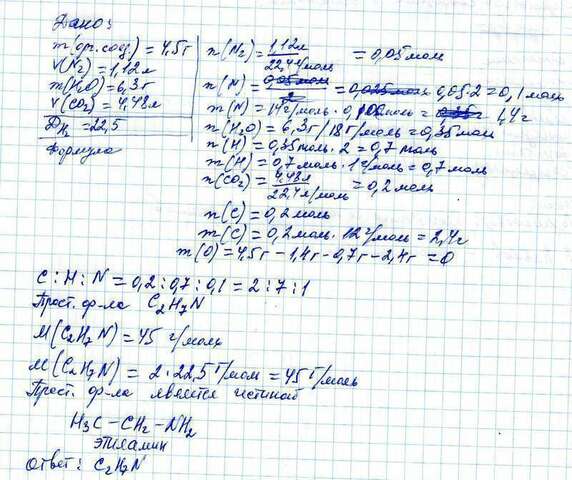 Дано:
m(ор. соед.) = 4,5г
V(N₂) = 1,12л
m(H₂O) = 6,3г
V(CO₂) = 4,48л
D_H₂ = 22,5
Формула
n(N₂) = 1,12л / 22,4л/моль = 0,05моль
n(N) = 0,05моль / 2 = 0,025моль 0,05·2 = 0,1моль
m(N) = 14г/моль · 0,1моль = 1,4г
n(H₂O) = 6,3г / 18г/моль = 0,35моль
n(H) = 0,35моль · 2 = 0,7моль
m(H) = 0,7моль · 1г/моль = 0,7моль
n(CO₂) = 4,48л / 22,4л/моль = 0,2моль
n(C) = 0,2моль
m(C) = 0,2моль · 12г/моль = 2,4г
m(O) = 4,5г - 1,4г - 0,7г - 2,4г = 0
C : H : N = 0,2 : 0,7 : 0,1 = 2 : 7 : 1
Прост. ф-ла C₂H₇N
M(C₂H₇N) = 45 г/моль
M(C₂H₇N) = 2 · 22,5г/моль = 45г/моль
Прост. ф-ла является истиной
H₃C – CH₂ – NH₂
этиламин
Ответ: C₂H₇N